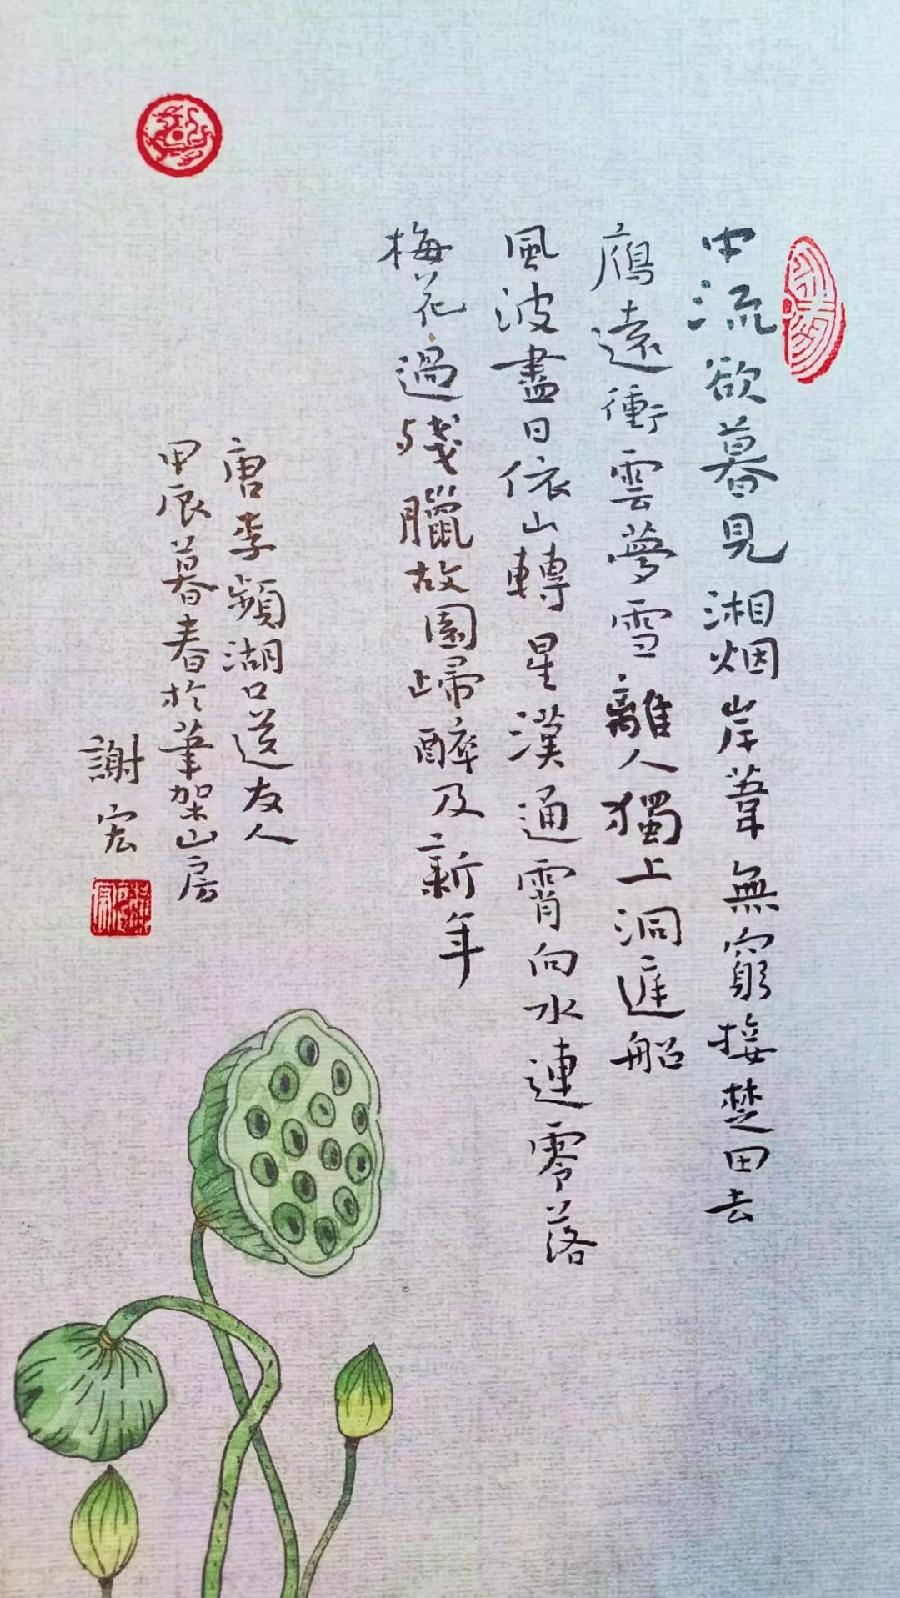 中流欲暮見湘烟岸葦無窮接楚田去
鴈遠衝雲夢雪離人獨上洞遅船
風波盡日依山轉星漢通霄向水連零落
梅花過殘臘故園歸醉及新年
唐李頻湖口送友人
甲辰暮春於筆架山房
謝宏